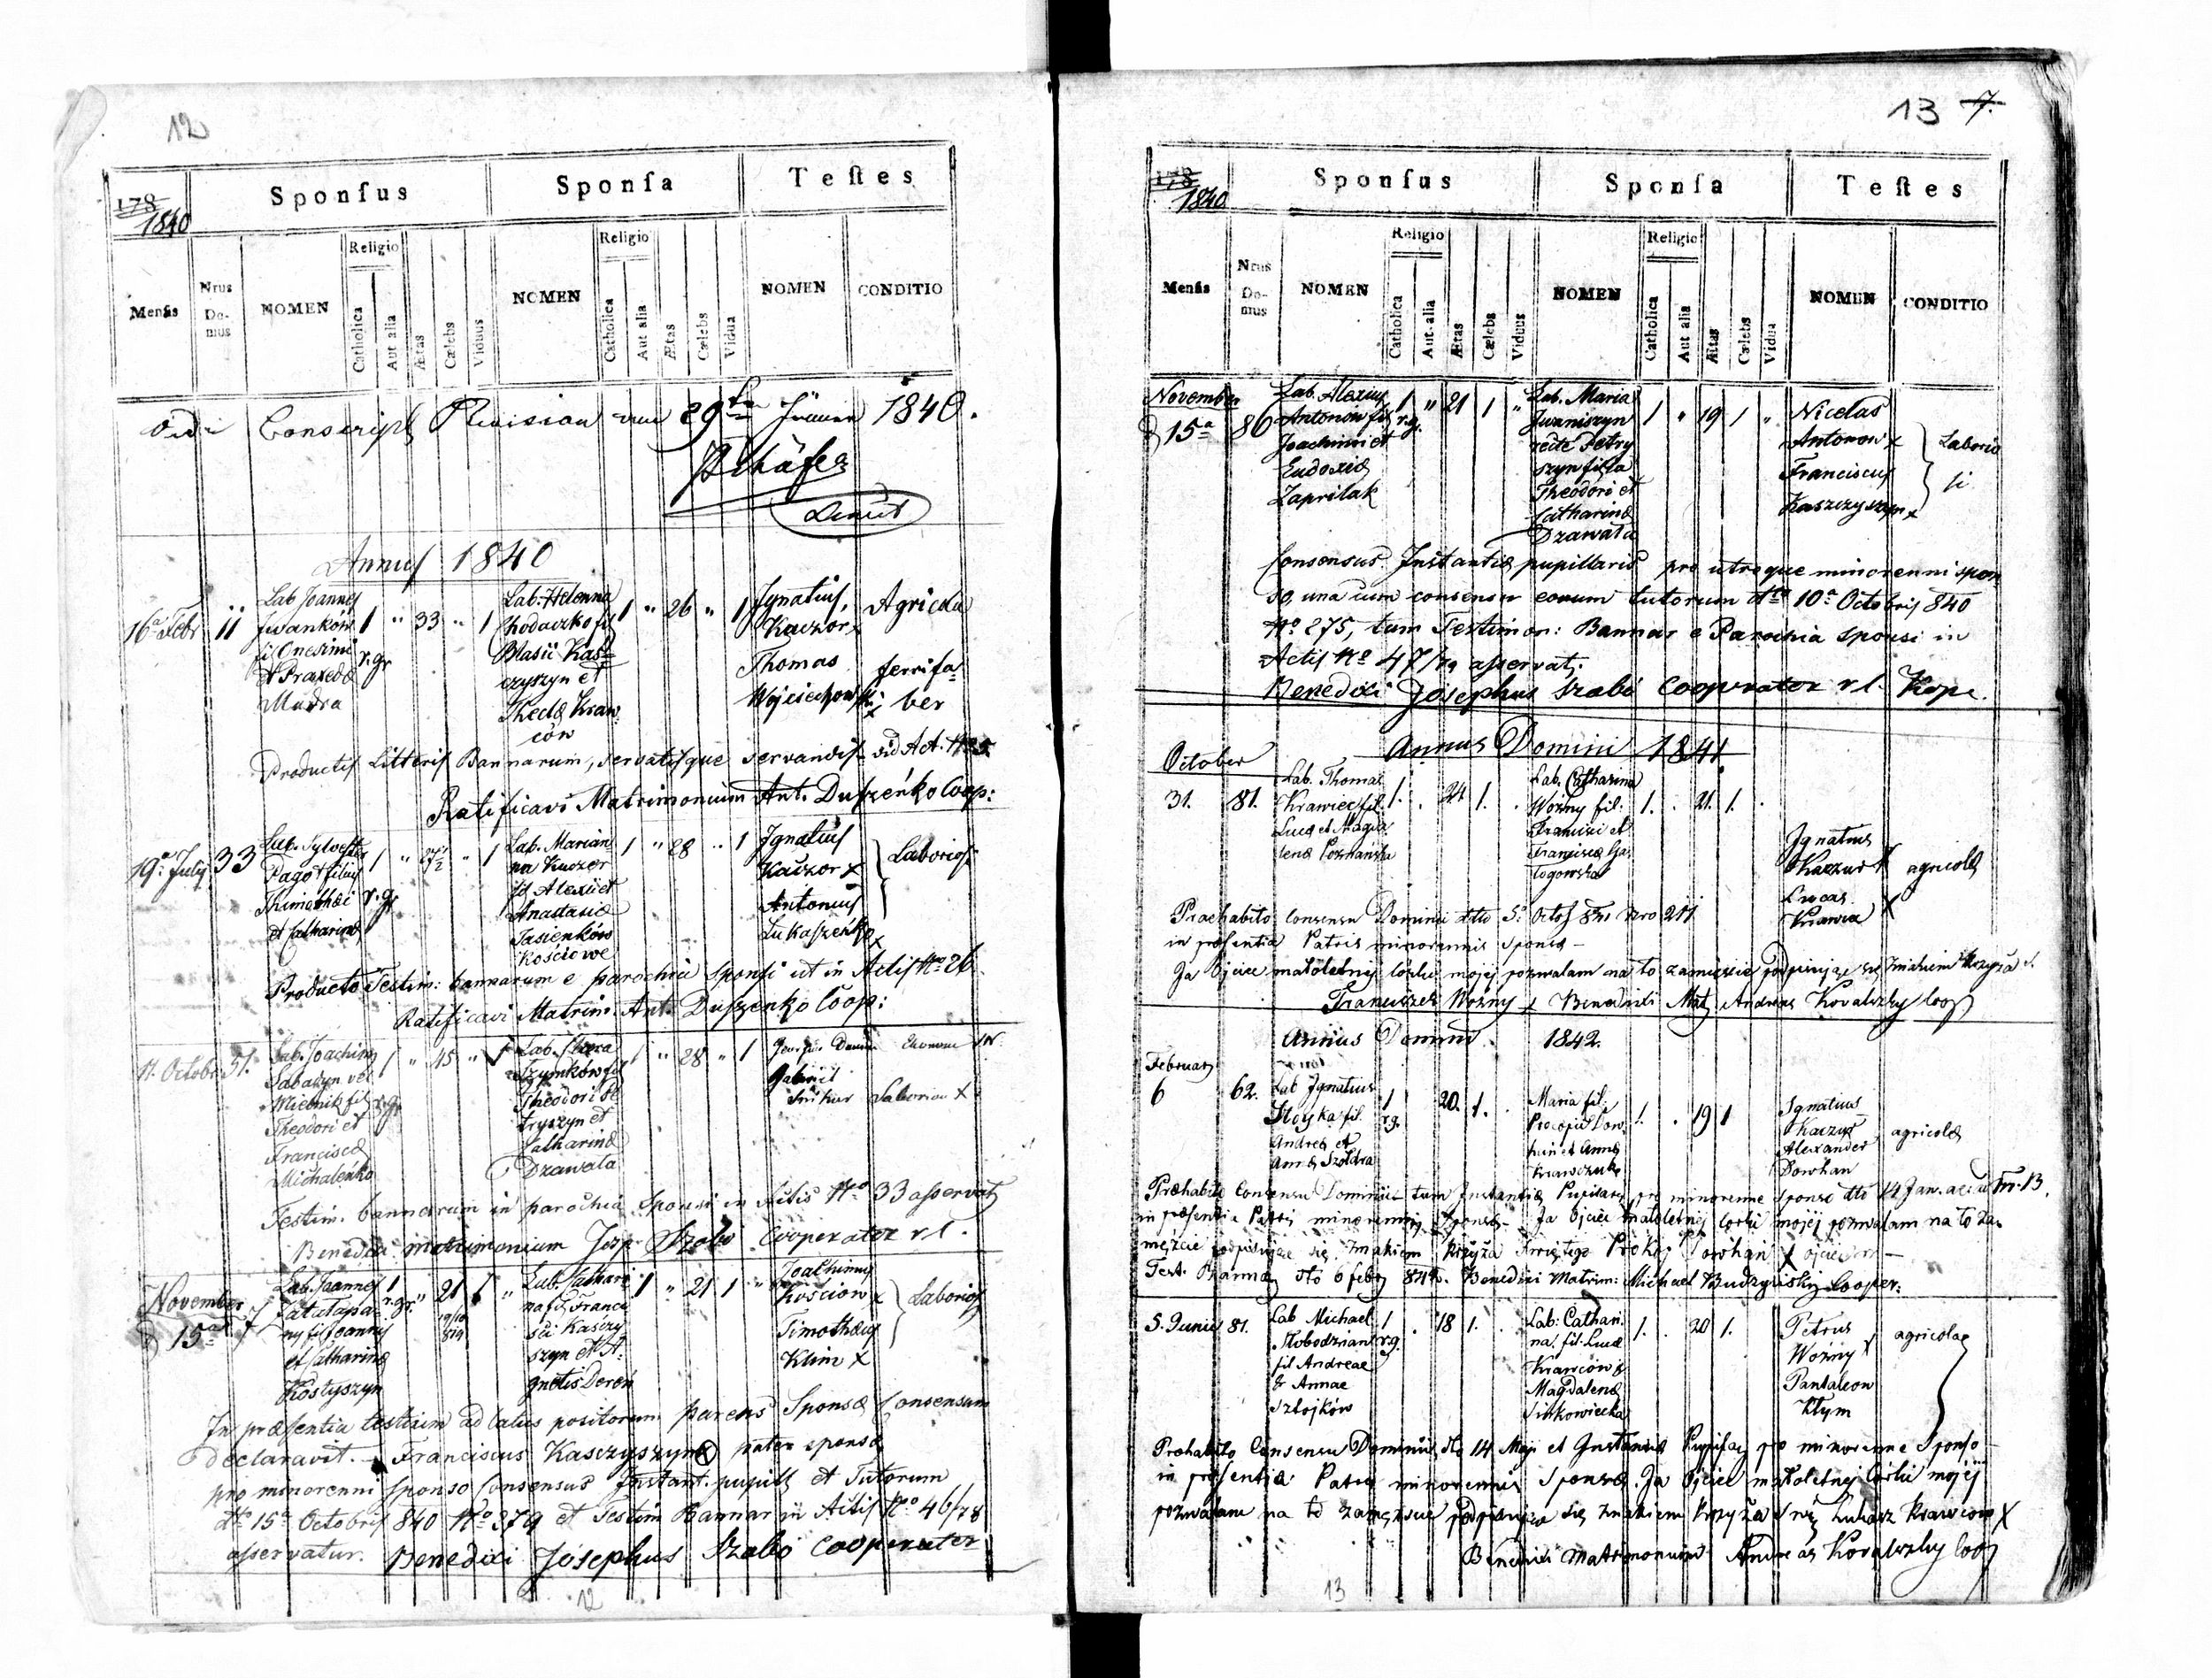 12
178
1840
Sponſus
Sponſa
Teſtes
Menſis
Nrus Domus
NOMEN
Religio
Catholica
Aut alia
Ætas
Cœlebs
Viduus
NOMEN
Religio
Catholica
Aut alia
Ætas
Cœlebs
Vidua
NOMEN
CONDITIO
Conscript Revision 29 1840.
Annus 1840
16a Febr 11
Lab Joannes
Iwanków
fil Onesimi
et Praxedæ
Mudra
1 " 33 " 1
r.gr
Lab. Helenna
Chodaczko fil
Blasii Kas-
czyszyn et
Theclæ Kraw-
ców
1 " 26 " 1
Ignatius
Kaczor x
Thomas
Wojciechowski x
Agricola
ferrifa-
ber
Productis Litteris Bannarum, servatisque servandis vid Act. No 5
Ratificavi Matrimonium Ant. Duszeńko Coop:
19a July 33
Lab. Sylvester
Pagot filius
Thimothei
et Catharinæ
1 " 27½ " 1
r.gr
Lab. Marian-
na Kaczor
fil Alexii et
Anastasiæ
Jasienków
Kościowe
1 " 28 " 1
Ignatius
Kaczor x
Antonius
Lukaszenko x
Laboriosi
Producto Testim: bannarum e parochia Sponsi ut in Actis No 26.
Ratificavi Matrim. Ant. Duszenko Coop:
11. Octobr. 51.
Lab. Joachim
Sabadyn vel
Mielnik fil
Theodori et
Franciscæ
Michalenko
1 " 45 " 1
r.gr
Lab.
Szymków fil
Theodori Pe-
tryszyn et
Catharinæ
Dzawala
1 " 28 " 1
Gabriel
Laborios x
Testim. bannarum in parochia Sponsi in Actis No 33 asservat
Benedixi matrimonium Josp. Szabo Cooperator r.l.
November
D 15a 7
Lab. Joannes
fil Joannis
et Catharinæ
Kostyszyn
1 " 21 1 "
r.gr.
Lab. Cathari-
na fil. Franci-
sci Kasczy-
szyn et A-
gnetis Doroń
1 " 21 1 "
Joachimus
Kościow x
Timotheus
Klim x
Laboriosi
In præsentia testium ad latus positorum parens Sponsæ Consensum
declaravit. Franciscus Kasczyszyn x pater sponsæ
pro minorenni sponso Consensus Instant. pupill et Tutorum
dto 15a Octobris 840 No 279 et Testim Bannar in Actis No 46/78
asservatur. Benedixi Jósephus Szabo Cooperator
12
13 7.
178
1840
Sponſus
Sponſa
Teſtes
Menſis
Nrus Domus
NOMEN
Religio
Catholica
Aut alia
Ætas
Cœlebs
Viduus
NOMEN
Religio
Catholica
Aut alia
Ætas
Cœlebs
Vidua
NOMEN
CONDITIO
November
D 15a 86
Lab. Alexius
Antonow fil
Joachimi et
Eudoxiæ
Zaprilak
1 " 21 1 "
r.g.
Lab. Maria
Juzniszyn
recte Petry-
szyn filia
Theodori et
Catharinæ
Dzawala
1 " 19 1 "
Nicetas
Antonow x
Franciscus
Kaszczyszyn x
Laborio
si
Consensus Instantiæ pupillaris pro utroque minorenni spon
so, una cum consensu eorum tutorum dto 10a Octobris 840
No 275, tum Testimon: Bannar e Parochia Sponsi in
Actis No 47/79 asservat.
Benedixi Jósephus Szabó Cooperator r.l. Kope.
Annus Domini 1841
October
31. 81.
Lab. Thomas
Krawiec fil.
Lucæ et Magda
lenæ Poznańska
1. . 24 1. .
Lab. Catharina
Woźny fil.
Francisci et
Franciscæ Ga-
logowska
1. . 21. 1. .
Ignatius
Kaczur x
Lucas
Krawca x
agricolæ
Praehabito Consensu Dominii dtto 5a Octob 841 Nro 211
in præsentia Patris minorennis Sponsæ –
Ja Ojciec małoletnij Córki mojéj pozwalam na to zamęzcie podpisuję się Znakiem Krzyża S.
Franciszek Woźny x Benedixi Mat. Andreas Kovalszky Coop
Annus Domini 1842.
February
6 62.
Lab Ignatius
Stoyka fil.
Andreæ et
Annæ Szoldra
1 . 20. 1. .
r.g.
Maria fil:
Procopii Dow-
han et Annæ
Krawczuk
1. . 19 1
Ignatius
Kaczur
Alexander
Dowhan
agricolæ
Præhabito Consensu Dominii tum Instantiæ Pupilaris pro minorenne Sponso dto 14 Jan. Nr. 13.
in præsentia Patris minorennis Sponsæ – Ja Ojciec małoletnij Corki mojéj pozwalam na to Za-
męzcie podpisując się Znakiem Krzyża Świętego Prokop Dowhań x ojciec
dto 6 feb. 842. Benedixi Matrim: Michael Budzyński Cooper:
5. Junii 81.
Lab Michael
Słobodzian
fil Andreae
& Annae
Szlojków
1 . 18 1. .
r.g.
Lab: Cathari-
na fil Lucæ
Krawców &
Magdalenæ
Sinkowiecka
1. . 20 1.
Petrus
Woźny x
Pantaleon
Klym
agricolae
Prahabito Consensu Dominii dto 14 Maji et Instantiæ Pupilar pro minorenne Sponso –
in præsentia Patris minorennis Sponsæ. Ja Ojciec małoletnej Córki mojéj
pozwalam na to zamęzcie podpisując się Znakiem Krzyża Świę Łukasz Krawców x
Benedixi Matrimonium Andreas Kovalszky Coop
13